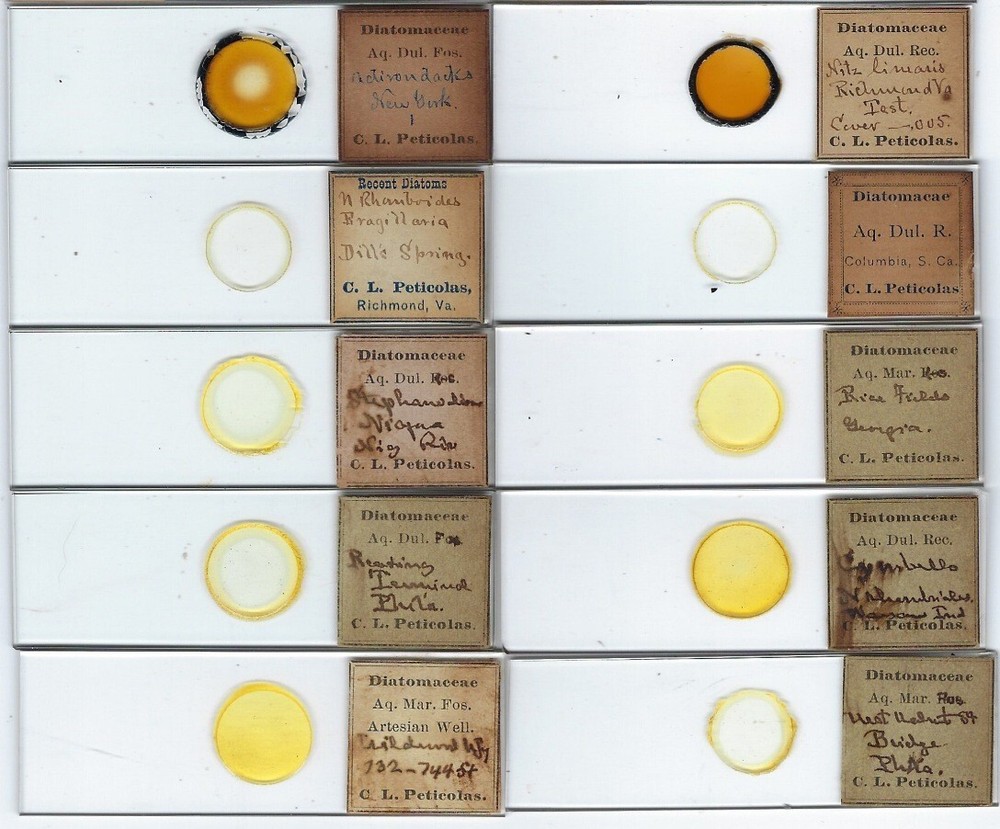 Diatomaceae
Aq. Dul. Fos.
Adirondacks
New York.
1
C. L. Peticolas.
Diatomaceae
Aq. Dul. Rec.
Nitz linearis
Richmond Va
Test.
Cover —.005.
C. L. Peticolas.
Recent Diatoms
N Rhomboides
Fragillaria
Dill's Spring.
C. L. Peticolas,
Richmond, Va.
Diatomacae
Aq. Dul. R.
Columbia, S. Ca.
C. L. Peticolas
Diatomaceae
Aq. Dul. Rec.
Niagra
Niag Riv
C. L. Peticolas.
Diatomaceae
Aq. Mar.
Rice Fields
Georgia.
C. L. Peticolas.
Diatomaceae
Aq. Dul. Fos
Reading
Terminal
Phila.
C. L. Peticolas.
Diatomaceae
Aq. Dul. Rec.
Cymbella
Ind
C. L. Peticolas.
Diatomaceae
Aq. Mar. Fos.
Artesian Well.
Wildwood NJ
732-744 ft
C. L. Peticolas.
Diatomaceae
Aq. Mar. Fos
Walnut St
Bridge
Phila.
C. L. Peticolas.